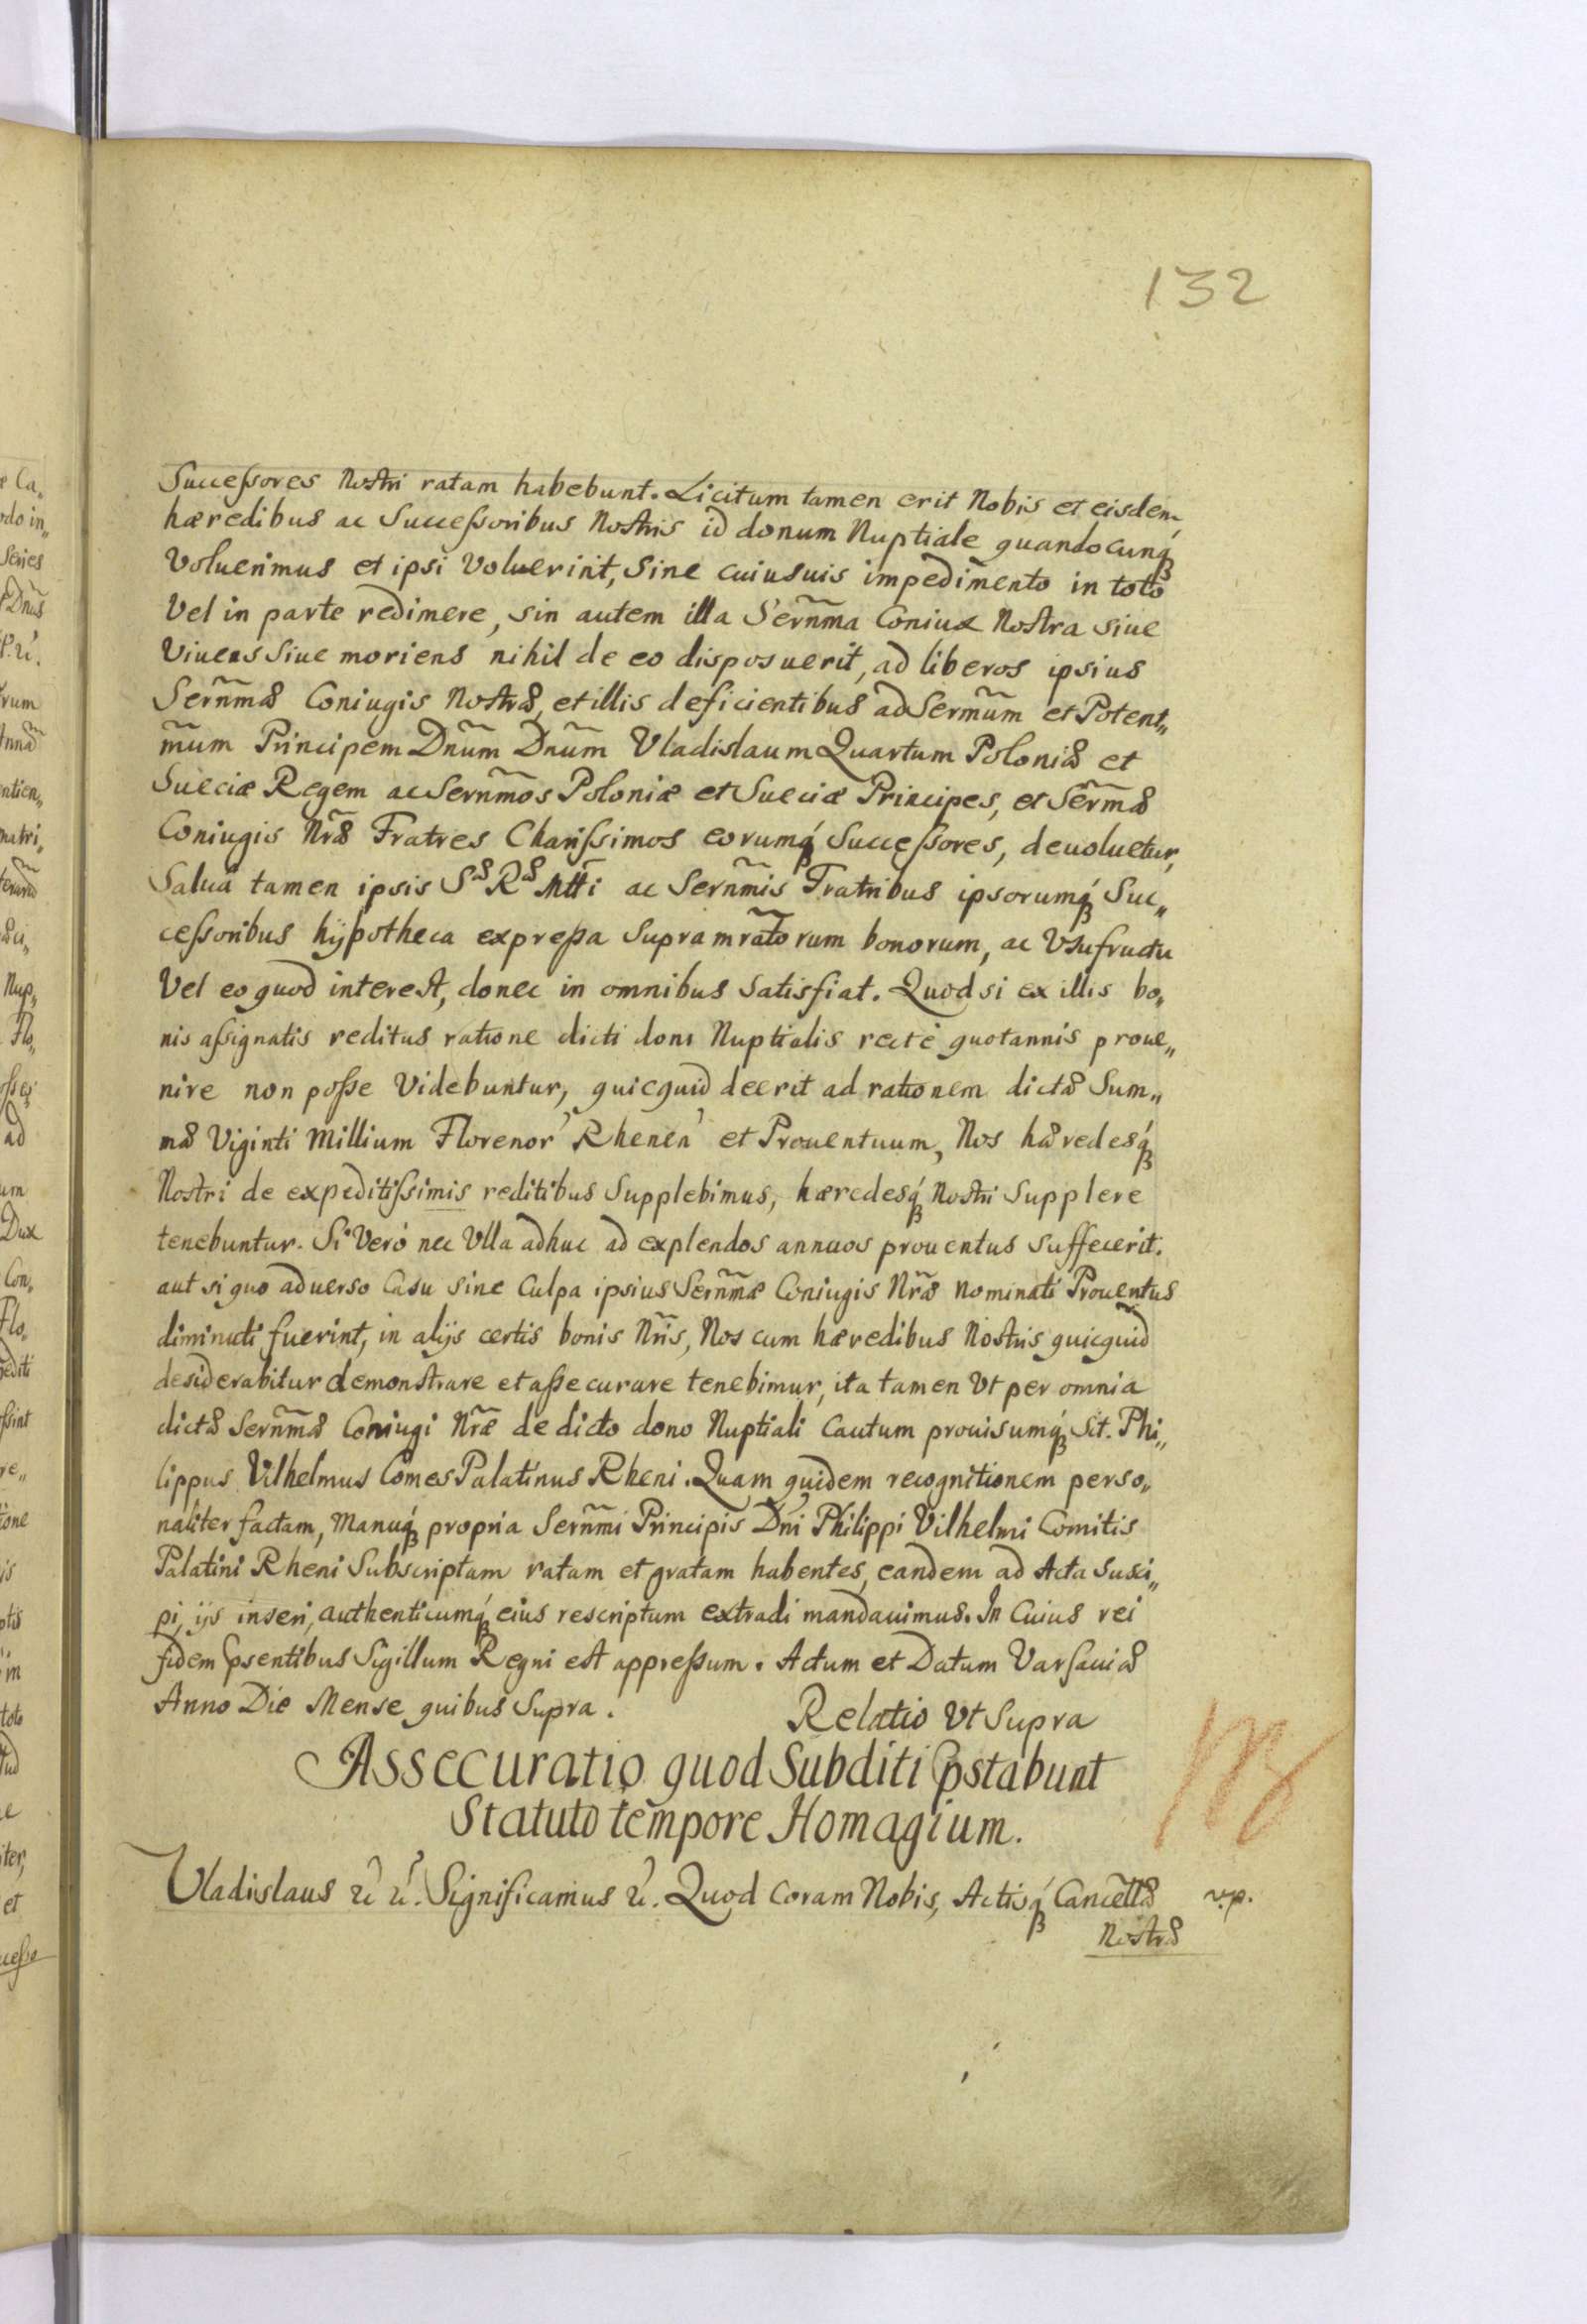 132
Successores Nostri ratam habebunt. Licitum tamen erit Nobis et eisdem
hæredibus ac Successoribus Nostris id donum Nuptiale quandocunq́
Voluerimus et ipsi Voluerint, Sine cuiusuis impedimento in toto
Vel in parte redimere, sin autem illa Sern̄ma Coniux Nostra siue
Viuens Siue moriens nihil de eo disposuerit, ad liberos ipsius
Sern̄mæ Coniugis Nostræ, et illis deficientibus ad Serm̄um et Potent„
m̄um Principem Dnūm Dnūm Vladislaum Quartum Poloniæ et
Sueciæ Regem ac Sern̄mos Poloniæ et Sueciæ Principes, et Ser̄mæ
Coniugis Nr̄æ Fratres Charissimos eorumq́ Successores, deuoluetur,
Saluâ tamen ipsis Sæ Ræ Mtti ac Sern̄mis Fratribus ipsorumq́ Suc„
cessoribus hÿpotheca expressa Supramrāto rum bonorum, ac Vsufructu
Vel eo quod interest, donec in omnibus Satisfiat. Quod si ex illis bo„
nis assignatis reditus ratione dicti doni Nuptialis recte quotannis proue„
nire non posse Videbuntur, quicquid deerit ad rationem dictæ Sum„
mæ Viginti Millium Florenor̛ Rhenen̛ et Prouentuum, Nos hæredesq́
Nostri de expeditissimis reditibus Supplebimus, hæredesq́ Nostri Supplere
tenebuntur. Si Vero nec Vlla adhuc ad explendos annuos prouentus Suffecerit.
aut si quo aduerso Casu sine Culpa ipsius Sern̄mæ Coniugis Nr̄æ Nominati Prouentus
diminuti fuerint, in alijs certis bonis Nrīs, Nos cum hæredibus Nostris quicquid
desiderabitur demonstrare et assecurare tenebimur, ita tamen Vt per omnia
dictæ Sern̄mæ Coniugi Nr̄æ de dicto dono Nuptiali Cautum prouisumq́ Sit. Phi„
lippus Vilhelmus Comes Palatinus Rheni. Quam quidem recognitionem perso„
naliter factam, Manuq́ propria Sern̄mi Principis Dn̛i Philippi Vilhelmi Comitis
Palatini Rheni Subscriptam ratam et gratam habentes, eandem ad Acta Susci„
pi, ijs inseri, authenticumq́ eius rescriptum extradi mandauimus. In Cuius rei
fidem Psentibus Sigillum Regni est appressum. Actum et Datum Varsauiæ
Anno Die Mense quibus Supra. Relatio Vt Supra
Assecuratio quod Subditi Pstabunt
Statuto tempore Homagium.
Vladislaus &c &c. Significamus &c. Quod Coram Nobis, Actisq́ Cancellæ
Nostræ